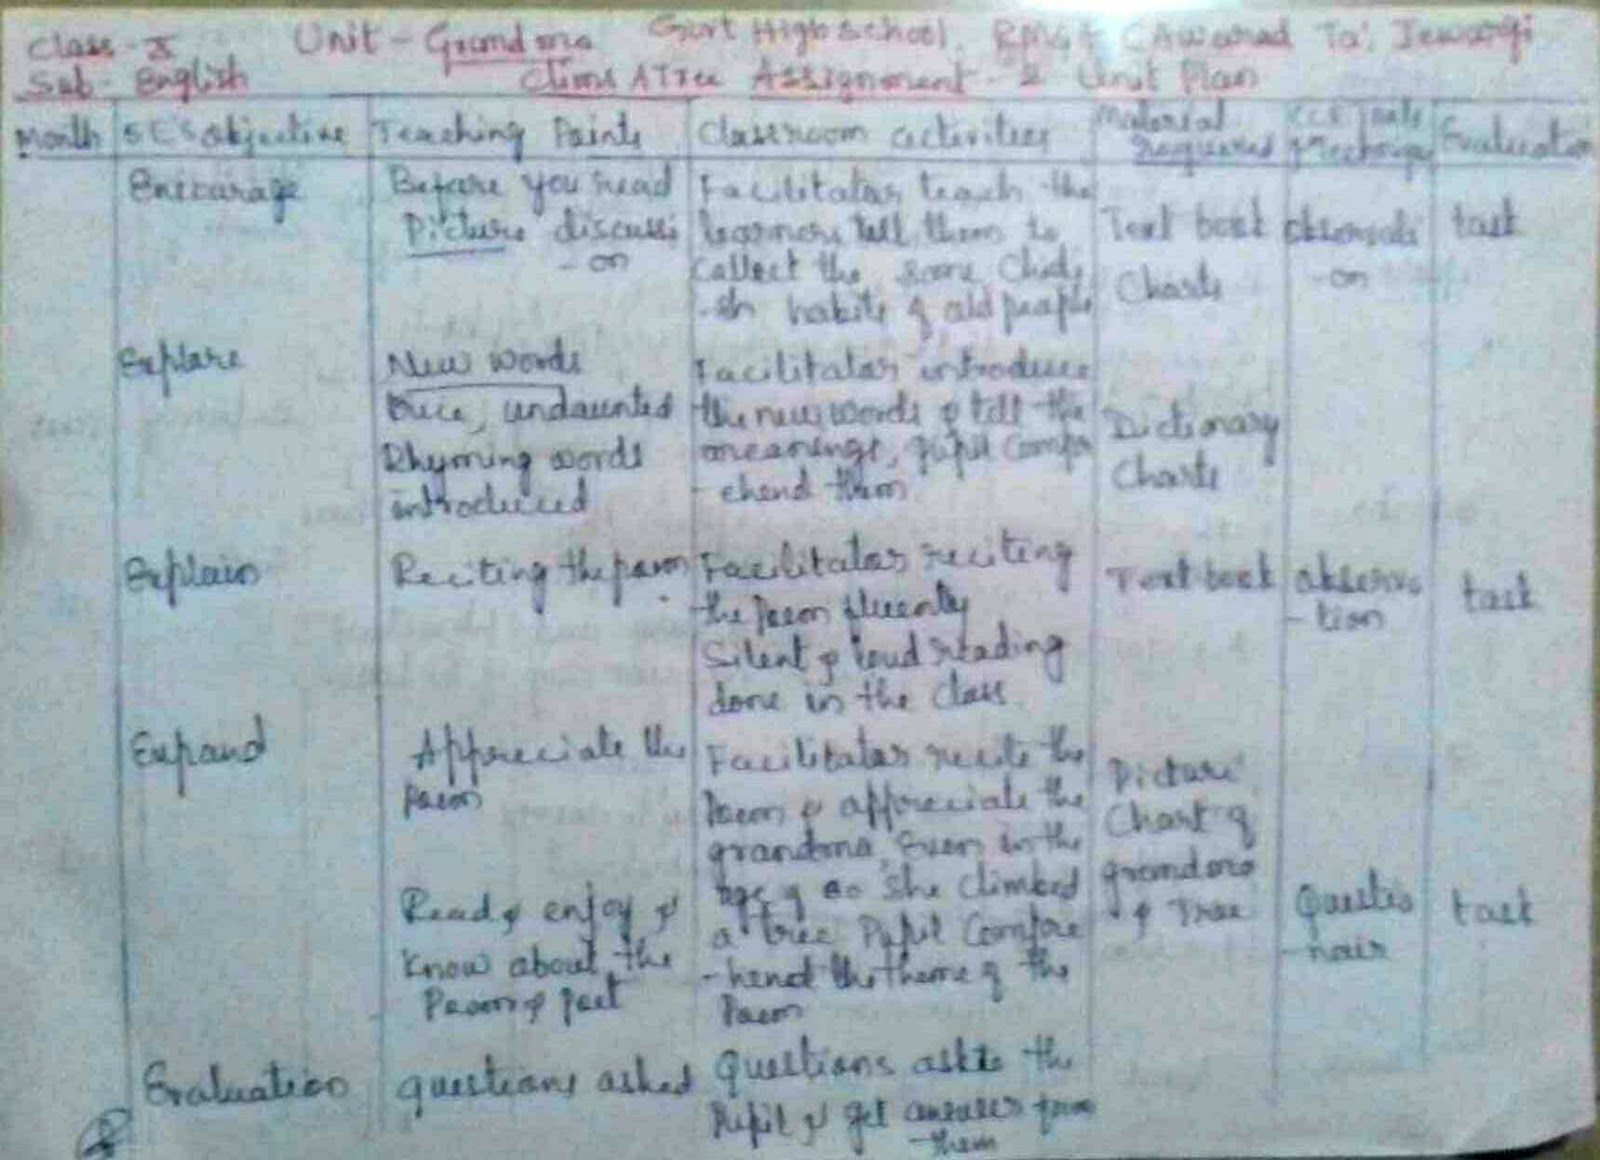 Class - X Unit - Grandma Govt High school, RMSA Awarad Ta: Jewargi
Sub - English Climbs A Tree Assignment - 2 Unit Plan
Month 5 E's objective Teaching Points Classroom activities Material Required Tools Evaluation
Encourage
Before you read
Picture discussi
- on
Facilitator teach the
learners tell them to
collect the some
habits of old people
Text book
Charts
observati
- on
task
Explore
New words
tree, undaunted
Rhyming words
introduced
Facilitator introduce
the new words & tell the
meanings, pupil Compre
- ehend them
Dictionary
Charts
Explain
Reciting the poem
Facilitator reciting
the Poem fluently
Silent & loud reading
done in the class
Text book
observa
- tion
task
Expand
Appreciate the
poem
Read & enjoy &
Know about the
Poem & poet
Facilitator recite the
Poem & appreciate the
grandma, Even in the
age of 60 she climbed
a tree Pupil Compre
- hend the theme of the
Poem
Picture
Chart of
grandma
& Tree
Questio
- nair
task
Evaluation
questions asked
Questions ask to the
Pupil & get answers from
- them